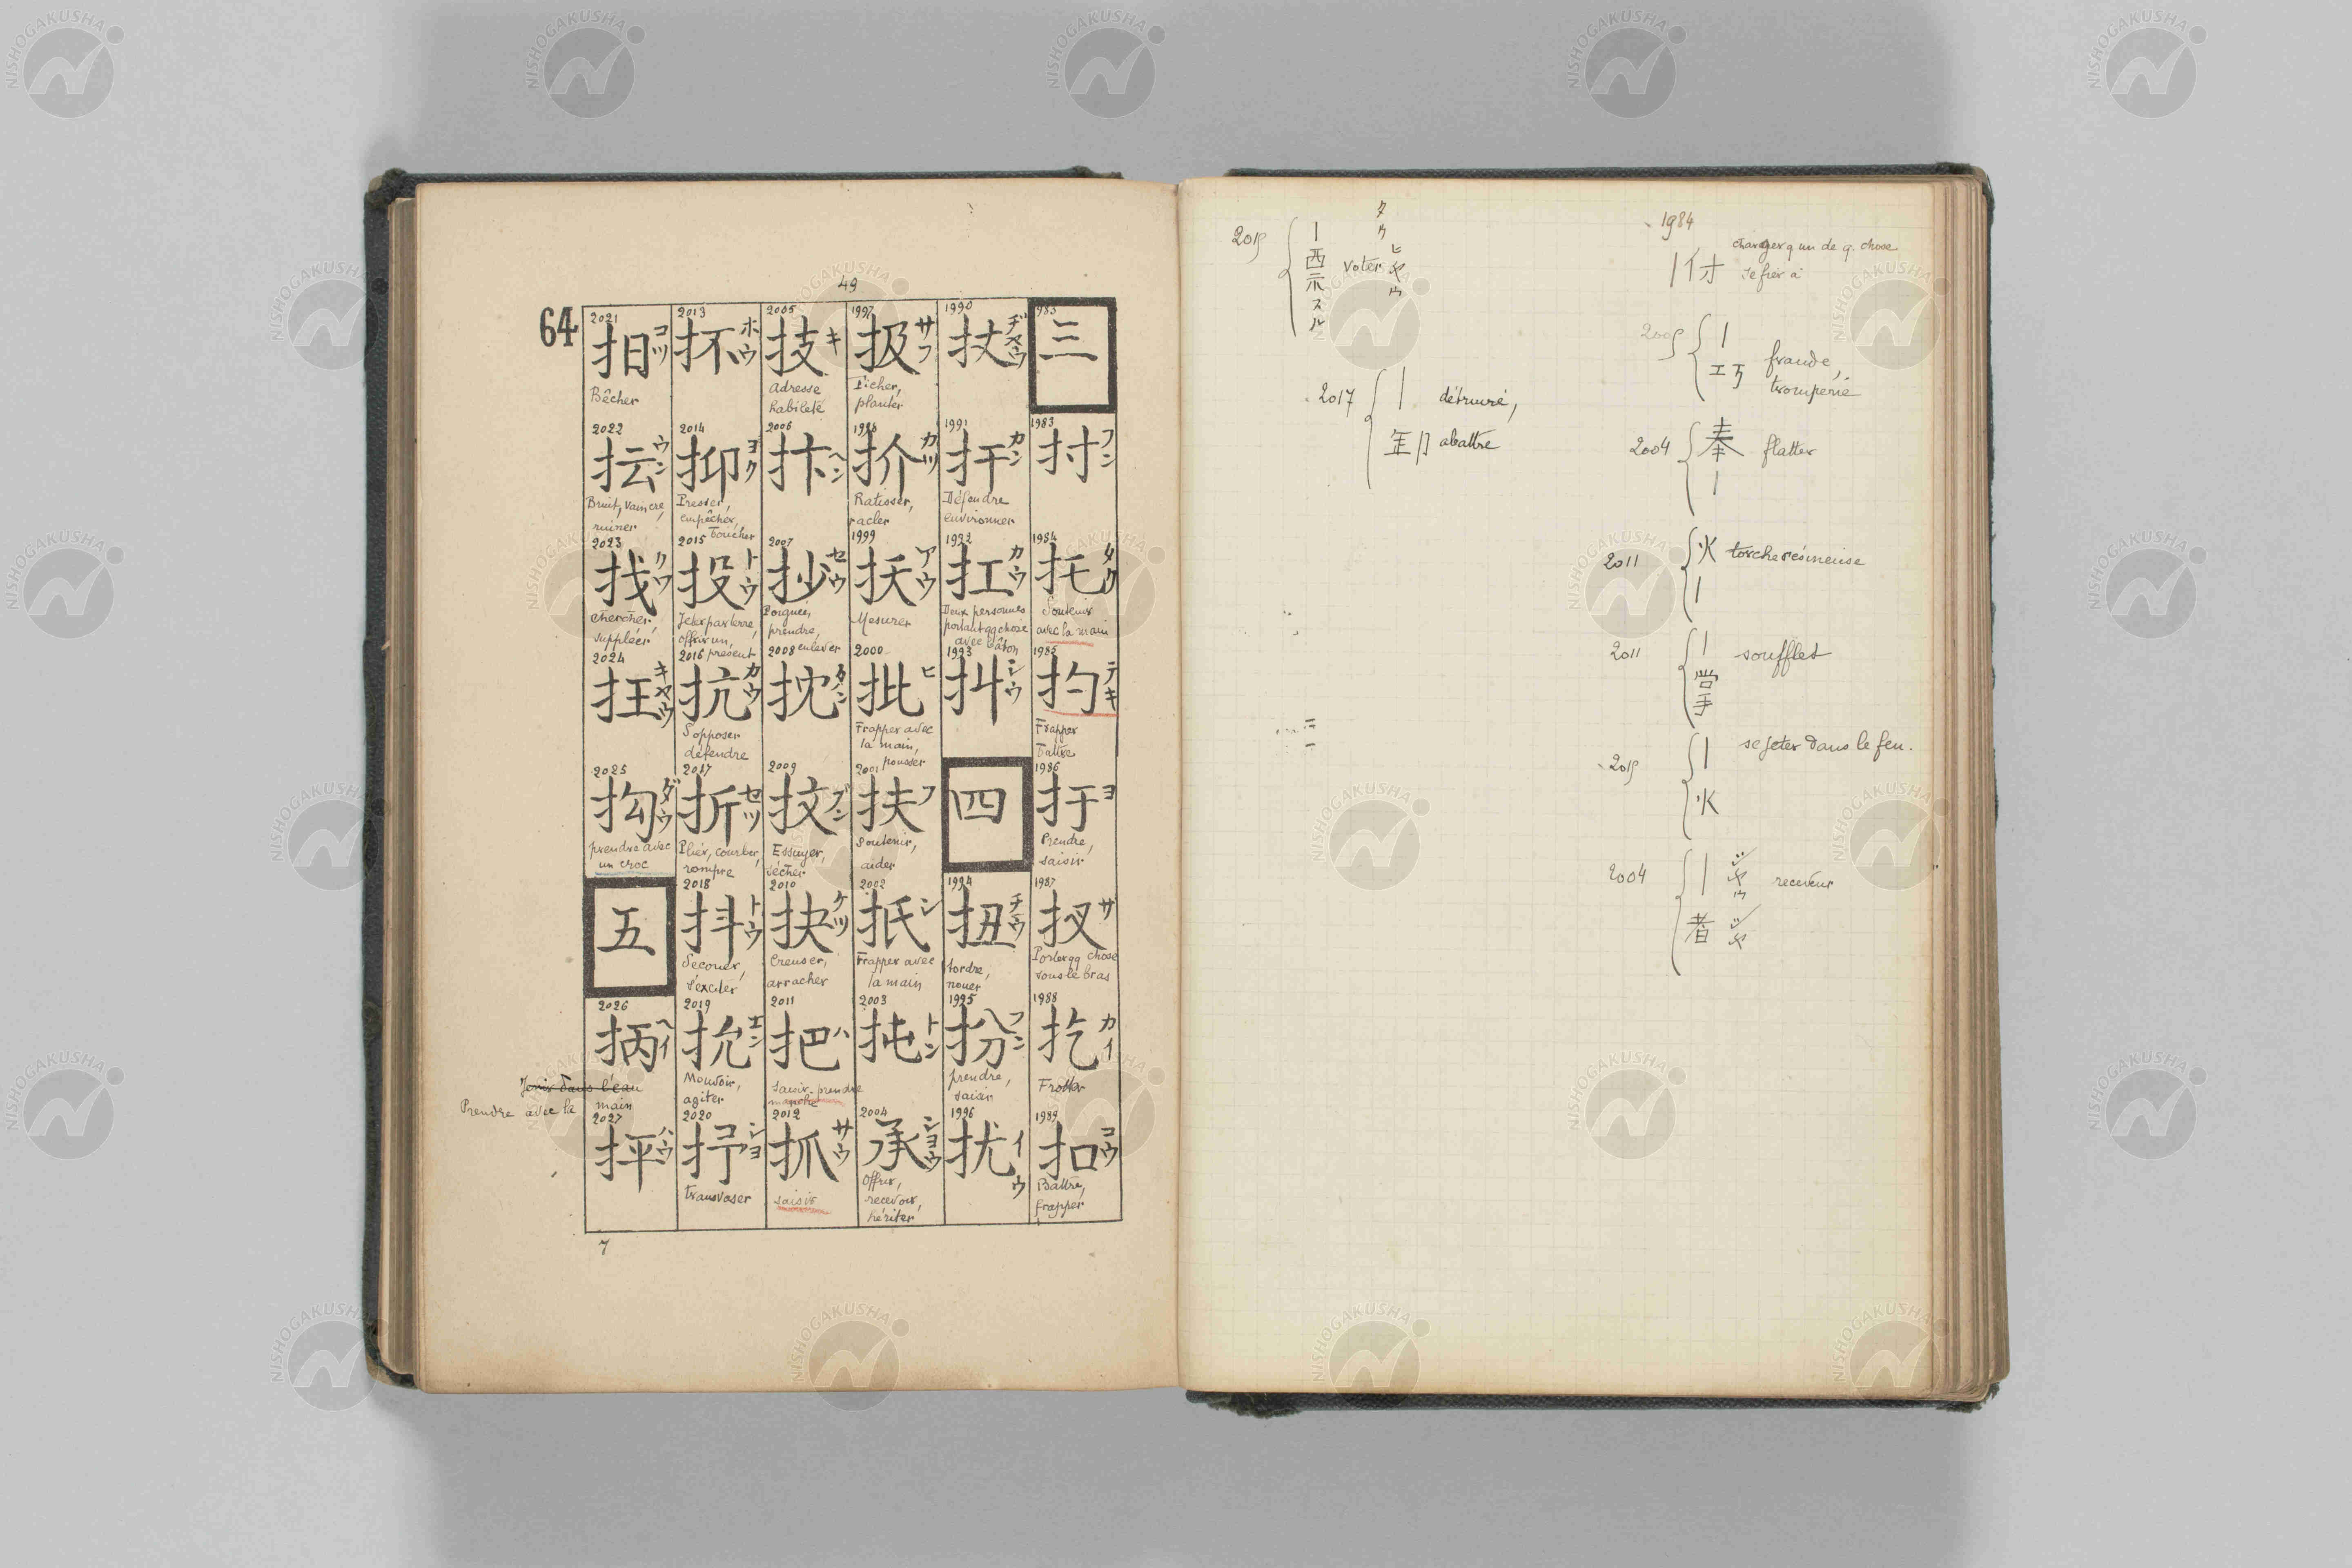 49
64
1983
三
1983
扌寸
フン
1984
托
タク
Soutenir
avec la main
1985
扚
テキ
Frapper
Battre
1986
扜
ヨ
Prendre,
saisir
1987
扠
サ
Porter qq chose
sous le bras
1988
扢
カイ
Frotter
1989
扣
コウ
Battre,
frapper
1990
扙
ヂャウ
1991
扞
カン
Défendre
environner
1992
扛
カウ
Deux personnes
portant qq chose
avec bâton
1993
シウ
四
1994
扭
チウ
tordre,
nouer
1995
扮
フン
prendre,
saisir
1996
扰
イウ
1997
扱
サフ
Ficher,
planter
1998
扴
カツ
Ratisser,
racler
1999
扷
アウ
Mesurer
2000
批
ヒ
Frapper avec
la main,
pousser
2001
扶
フ
Soutenir,
aider
2002
扺
シ
Frapper avec
la main
2003
扽
トン
2004
承
ショウ
Offrir,
recevoir,
hériter
2005
技
キ
Adresse
habileté
2006
抃
ヘン
2007
抄
セウ
Poignée,
prendre,
enlever
2008
抌
タン
2009
抆
ブン
Essuyer,
sécher
2010
抉
ケツ
Creuser,
arracher
2011
把
ハ
Saisir, prendre
manche
2012
抓
サウ
saisir
2013
抔
ホウ
2014
抑
ヨク
Presser,
empêcher,
Toucher
2015
投
トウ
Jeter par terre,
offrir un,
présent
2016
抗
カウ
S'opposer
défendre
2017
折
セツ
Plier, courber,
rompre
2018
抖
トウ
Secouer,
s'exciter
2019
抁
エン
Mouvoir,
agiter
2020
抒
コ
ショ
transvaser
2021
抇
コツ
Bêcher
2022
抎
ウン
Bruit, vaincre,
ruiner
2023
找
クワ
Chercher,
suppléer
2024
抂
キャウ
2025
抅
ダウ
prendre avec
un croc
五
2026
抦
ヘイ
Tenir dans l'eau
Prendre avec la main
2027
抨
ハウ
7
1984
｜付
charger q un de q. chose
se fier à
2005
｜
工丂
fraude,
tromperie
2004
奉
｜
flatter
2011
火
｜
torche résineuse
2011
｜
掌
soufflet
2015
｜
火
se jeter dans le feu.
2004
｜
者
receveur
2015
｜
西
示
スル
voter
ヒャウ
2017
｜
détruire,
abattre